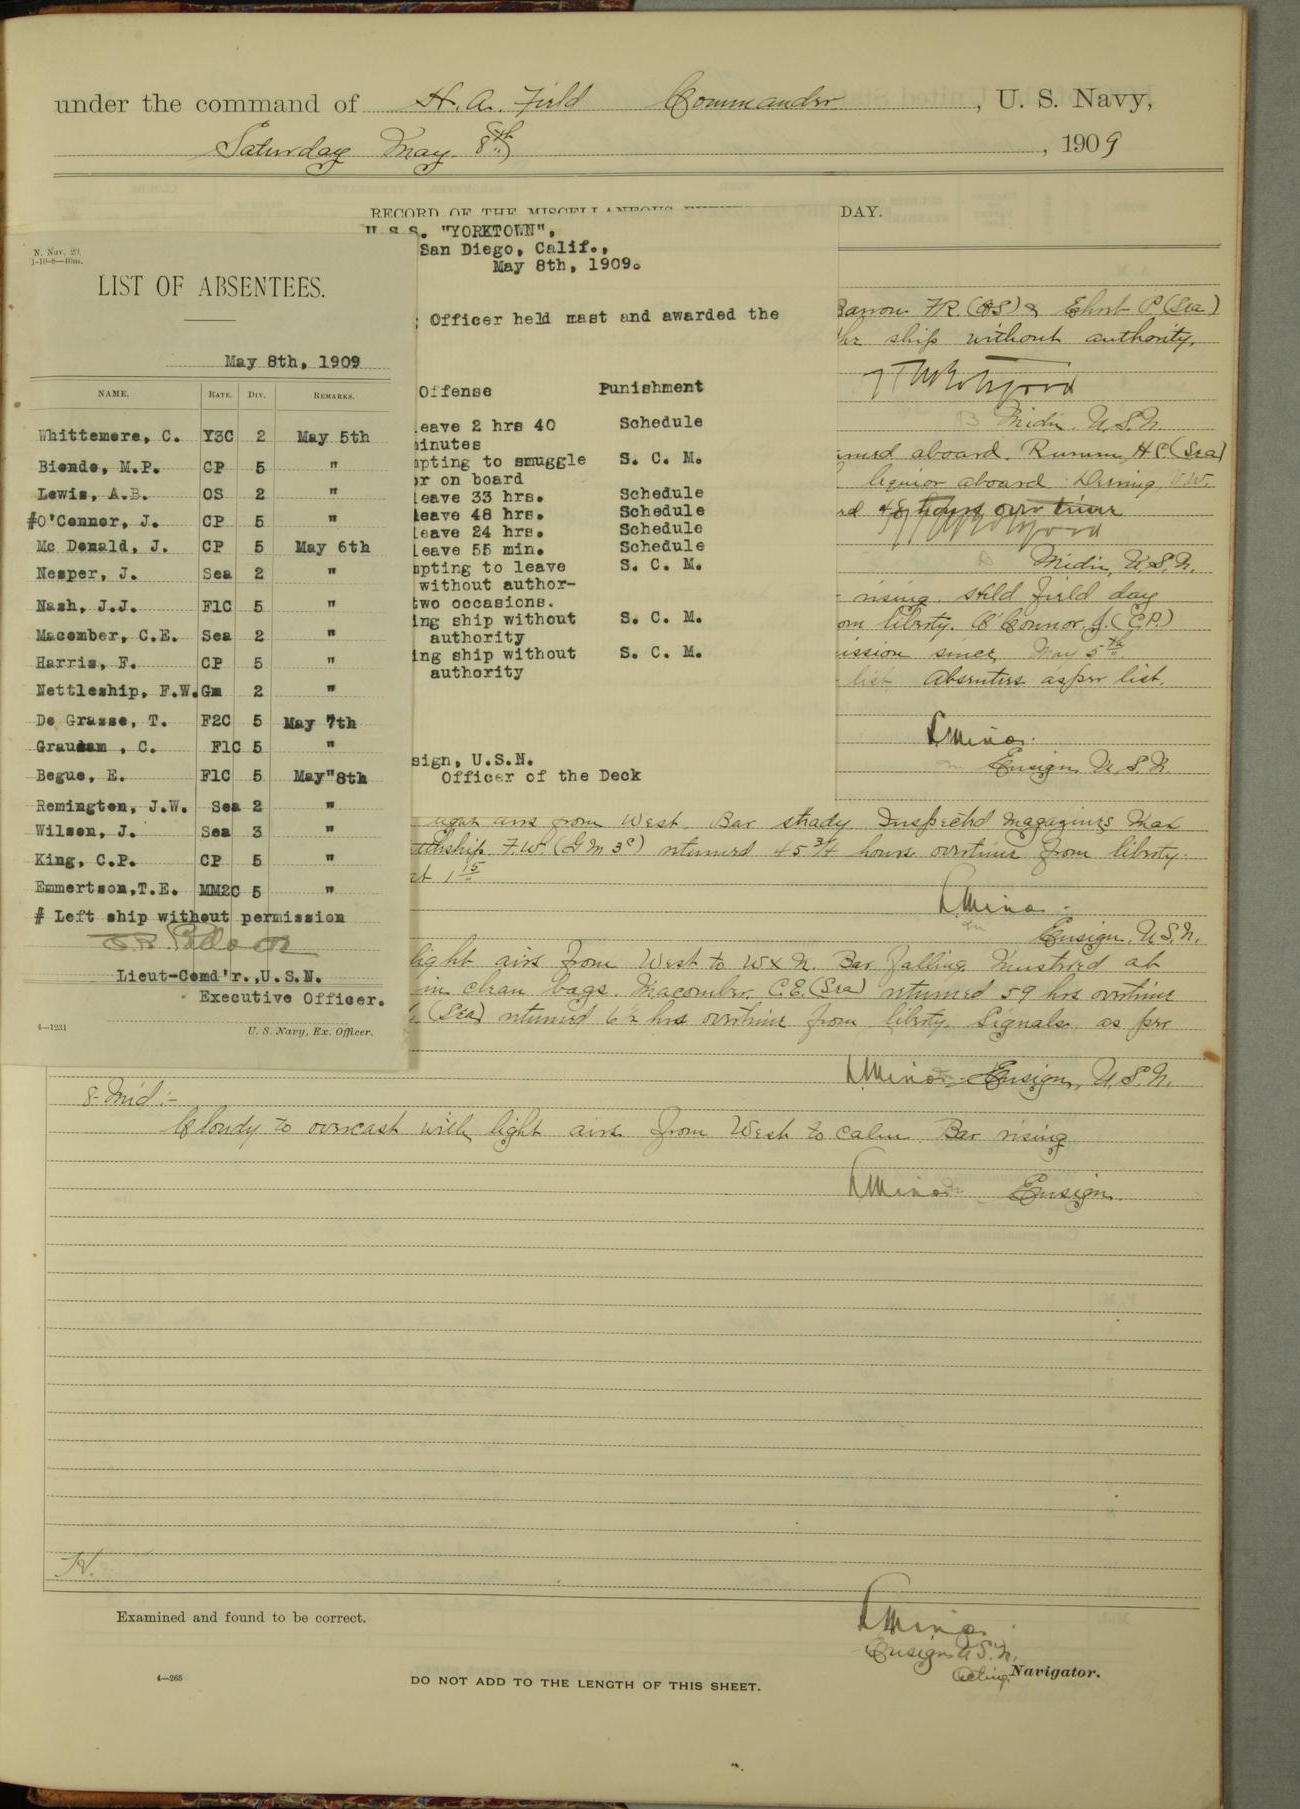 under the command of H. A. Field Commander, U. S. Navy,
Saturday May 8th, 1909
RECORD OF THE MISCELLANEOUS
DAY.
U.S.S. "YORKTOWN",
San Diego, Calif.,
May 8th, 1909.
Officer held mast and awarded the
Offense Punishment
eave 2 hrs 40 Schedule
inutes
pting to smuggle S. C. M.
or on board
eave 33 hrs. Schedule
eave 48 hrs. Schedule
eave 24 hrs. Schedule
eave 55 min. Schedule
pting to leave S. C. M.
without author-
two occasions.
ing ship without S. C. M.
authority
ing ship without S. C. M.
authority
sign, U.S.N.
Officer of the Deck
N. Nav. 29.
LIST OF ABSENTEES.
May 8th, 1909
NAME. RATE. DIV. REMARKS.
Whittemore, C. Y3C 2 May 5th
Biendo, M.P. CP 5 "
Lewis, A.B. OS 2 "
#O'Conner, J. CP 5 "
Mc Donald, J. CP 5 May 6th
Nesper, J. Sea 2 "
Nash, J.J. F1C 5 "
Macomber, C.E. Sea 2 "
Harris, F. CP 5 "
Nettleship, F.W. Gm 2 "
De Grasse, T. F2C 5 May 7th
Graudam , C. F1C 5 "
Begue, E. F1C 5 May"8th
Remington, J.W. Sea 2 "
Wilson, J. Sea 3 "
King, C.P. CP 5 "
Emmertson,T.E. MM2C 5 "
# Left ship without permission
Lieut-Comd'r.,U.S.N.
Executive Officer.
4—1231 U. S. Navy, Ex. Officer.
Barrow F.R. (OS) & Ehrst P. (Sea)
ship without authority.
Midn. U.S.N.
aboard. H.C. (Sea)
liquor aboard
48 hours over time
Midn, U.S.N.
rising. Held field day
om liberty. O'Connor, J. (C.P.)
ission since May 5th.
list Absentees as per list.
Ensign U.S.N.
airs from West Bar steady Inspected magazines
ship F.W. (G M 3c) returned 45 3/4 hours overtime from liberty.
at 1 15
Ensign, U.S.N.
light airs from West to WxN. Bar falling. Mustered at
in clean bags. Macomber, C.E. (Sea) returned 59 hrs overtime
(Sea) returned 6½ hrs overtime from liberty. Signals as per
Ensign, U.S.N.
8-Mid:-
Cloudy to overcast with light airs from West to calm Bar rising
Ensign.
Examined and found to be correct.
Ensign U.S.N.
Acting Navigator.
4—265
DO NOT ADD TO THE LENGTH OF THIS SHEET.